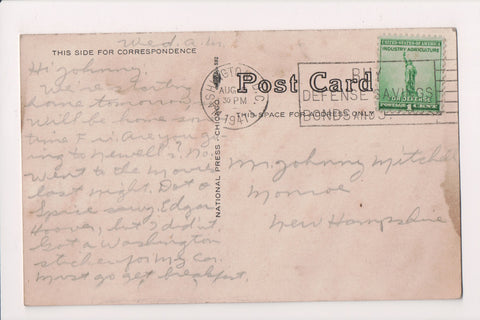 Wed. a.m.
THIS SIDE FOR CORRESPONDENCE
Hi Johnny,
We're starting
home tomorrow,
Will be home some
time Fri. Are you go
ing to Newell's? No.
Went to the movie
last night. Dot &
Spice saw Edgar
Hoover, but I didn't.
Got a Washington
sticker for my car.
Must go get breakfast.
NATIONAL PRESS - CHICAGO
Post Card
THIS SPACE FOR ADDRESS ONLY
WASHINGTON D.C.
AUG
PM
1941
DEFENSE SAVINGS
BONDS AND
UNITED STATES OF AMERICA
INDUSTRY AGRICULTURE
FOR DEFENSE
POSTAGE 1 CENT
Mr. Johnny Mitchell
Monroe
New Hampshire